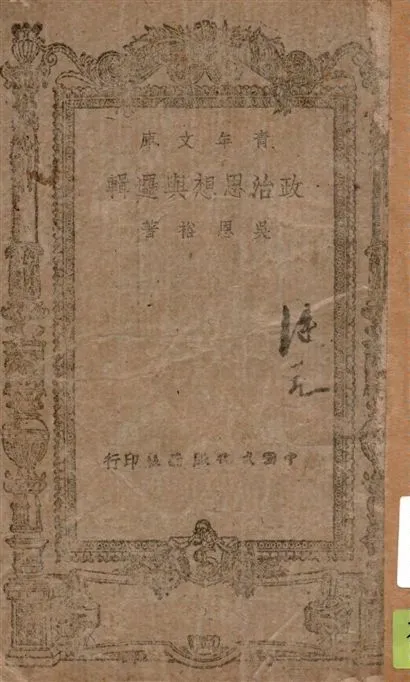 青年文庫
政治思想與邏輯
吳恩裕著
中國文化服務社印行